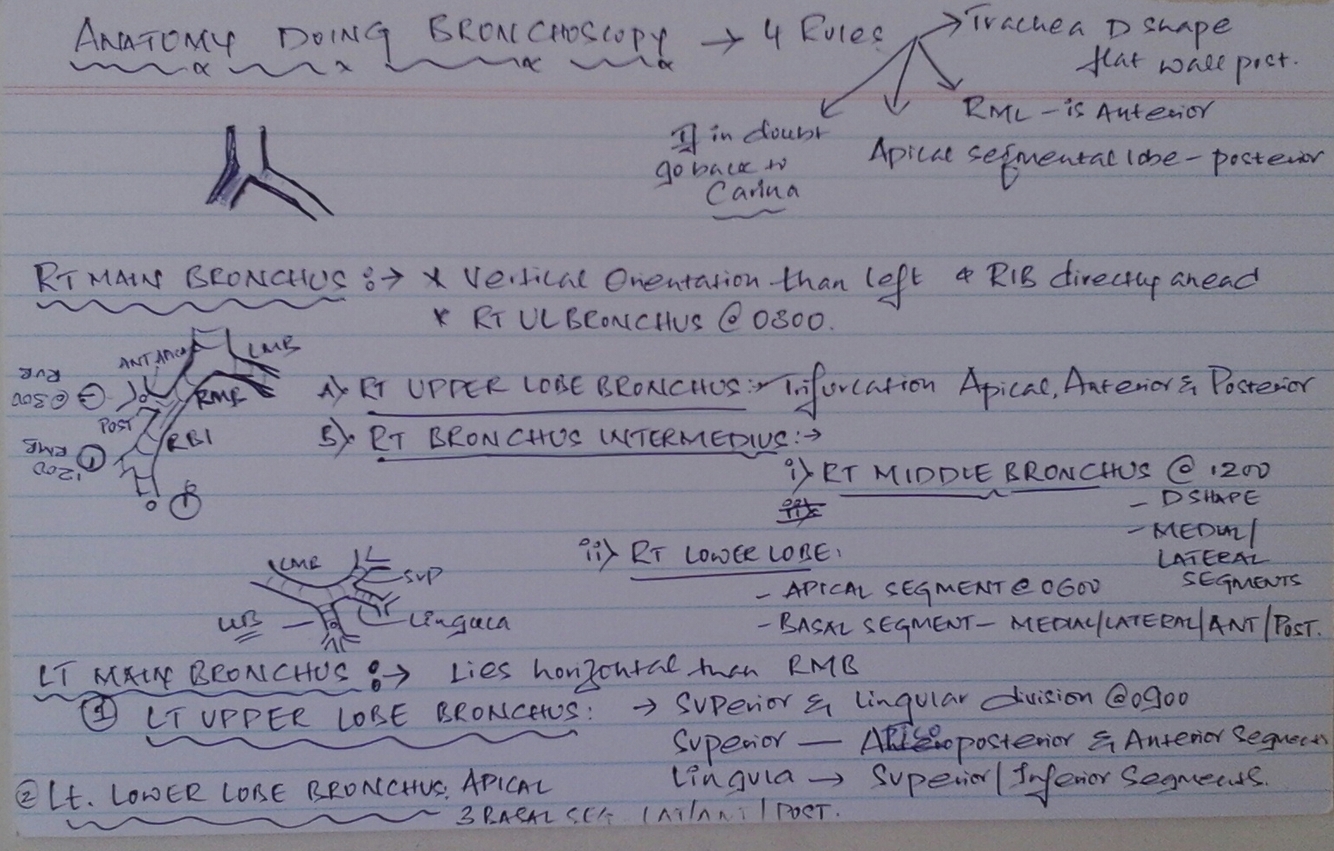 ANATOMY DOING BRONCHOSCOPY → 4 Rules
→ Trachea D shape
flat wall post.
RML - is Anterior
Apical segmental lobe - posterior
If in doubt
go back to
Carina
RT MAIN BRONCHUS :→ * Vertical Orientation than left & RIB directly ahead
* RT UL BRONCHUS @ 0300.
ANT APICAL
LMB
RMB
POST
RBI
RUB
@300
RMB
1200
A) RT UPPER LOBE BRONCHUS :→ Trifurcation Apical, Anterior & Posterior
B) RT BRONCHUS INTERMEDIUS :→
i) RT MIDDLE BRONCHUS @ 1200
- D SHAPE
- MEDIAL/
LATERAL
SEGMENTS
ii) RT LOWER LOBE:
- APICAL SEGMENT @ 0600
- BASAL SEGMENT - MEDIAL/LATERAL/ANT/POST.
LMB
SUP
Lingula
LLB
LT MAIN BRONCHUS :→ Lies horizontal than RMB
① LT UPPER LOBE BRONCHUS: → Superior & lingular division @0900
Superior — Apicoposterior & Anterior Segment
Lingula → Superior/Inferior Segments.
② Lt. LOWER LOBE BRONCHUS: APICAL
3 BASAL SEG LAT/ANT/POST.